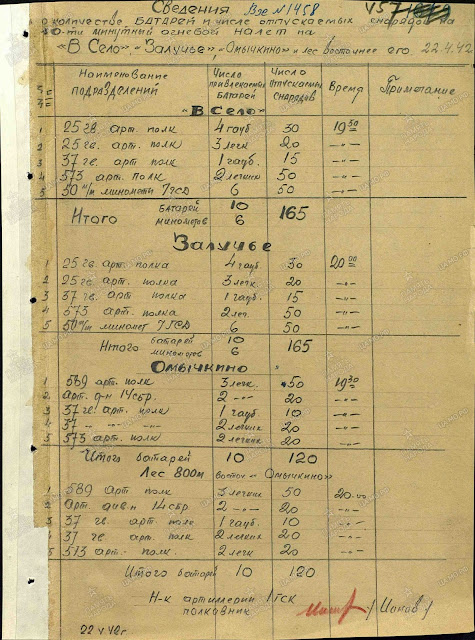 Сведения Вх № 1458
о количестве батарей и числе отпускаемых снарядов на
10-ти минутный огневой налет на
"В Село", "Залучье", "Омычкино" и лес восточнее его 22.4.42
Наименование подразделений Число привлекаемых батарей Число отпускаемых снарядов Время Примечание
"В Село"
1 25 гв. арт. полк 4 гауб. 30 19 30
2 25 гв. арт. полк 3 легк 20 -"-
3 37 гв. арт полк 1 гауб. 15 -"-
4 573 арт. полк 2 легких 50 -"-
5 50 м/м минометы 7 ГСД 6 50 -"-
Итого батарей 10 165
минометов 6
Залучье
1 25 гв. арт. полка 4 гауб. 30 20 00
2 25 гв. арт. полка 3 легк. 20 -"-
3 37 гв. арт полка 1 гауб. 15 -"-
4 573 арт. полка 2 лег. 50 -"-
5 50 м/м миномет 7 ГСД 6 50 -"-
Итого батарей 10 165
минометов 6
Омычкино
1 589 арт. полк 3 легк. 50 19 30
2 арт. д-н 14 сбр. 2 -"- 20 -"-
3 37 гв. арт. полк 1 гауб 10 -"-
4 37 -"- -"- -"- 2 легких 20 -"-
5 573 арт. полк 2 легких 20 -"-
Итого батарей 10 120
Лес 800 м восточ "Омычкино"
1 589 арт полк 3 легких 50 20.00
2 Арт див-н 14 сбр 2 -"- 20 -"-
3 37 гв. арт полк 1 гауб. 10 -"-
4 37 гв арт. полк 2 легких 20 -"-
5 513 арт. полк. 2 легк 20 -"-
Итого батарей 10 120
Н-к артиллерии 1 ГСК
полковник
22 V 42г